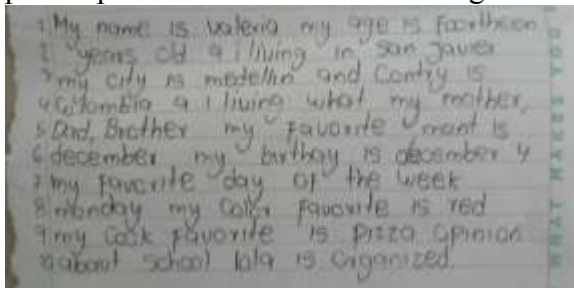 1 My name is valeria my age is Foortheen
2 years old 9 I living in San Javier
3 my city is medellin and Contry is
4 Colombia 9 I living what my mother,
5 Dad, Brother my Favorite mont is
6 december my birthay is december 4
7 my favorite day of the week
8 monday my Color Favorite is red
9 my Cook Favorite is Pizza opinion
10 about school lola is Organized.
WHAT MAKES YOU